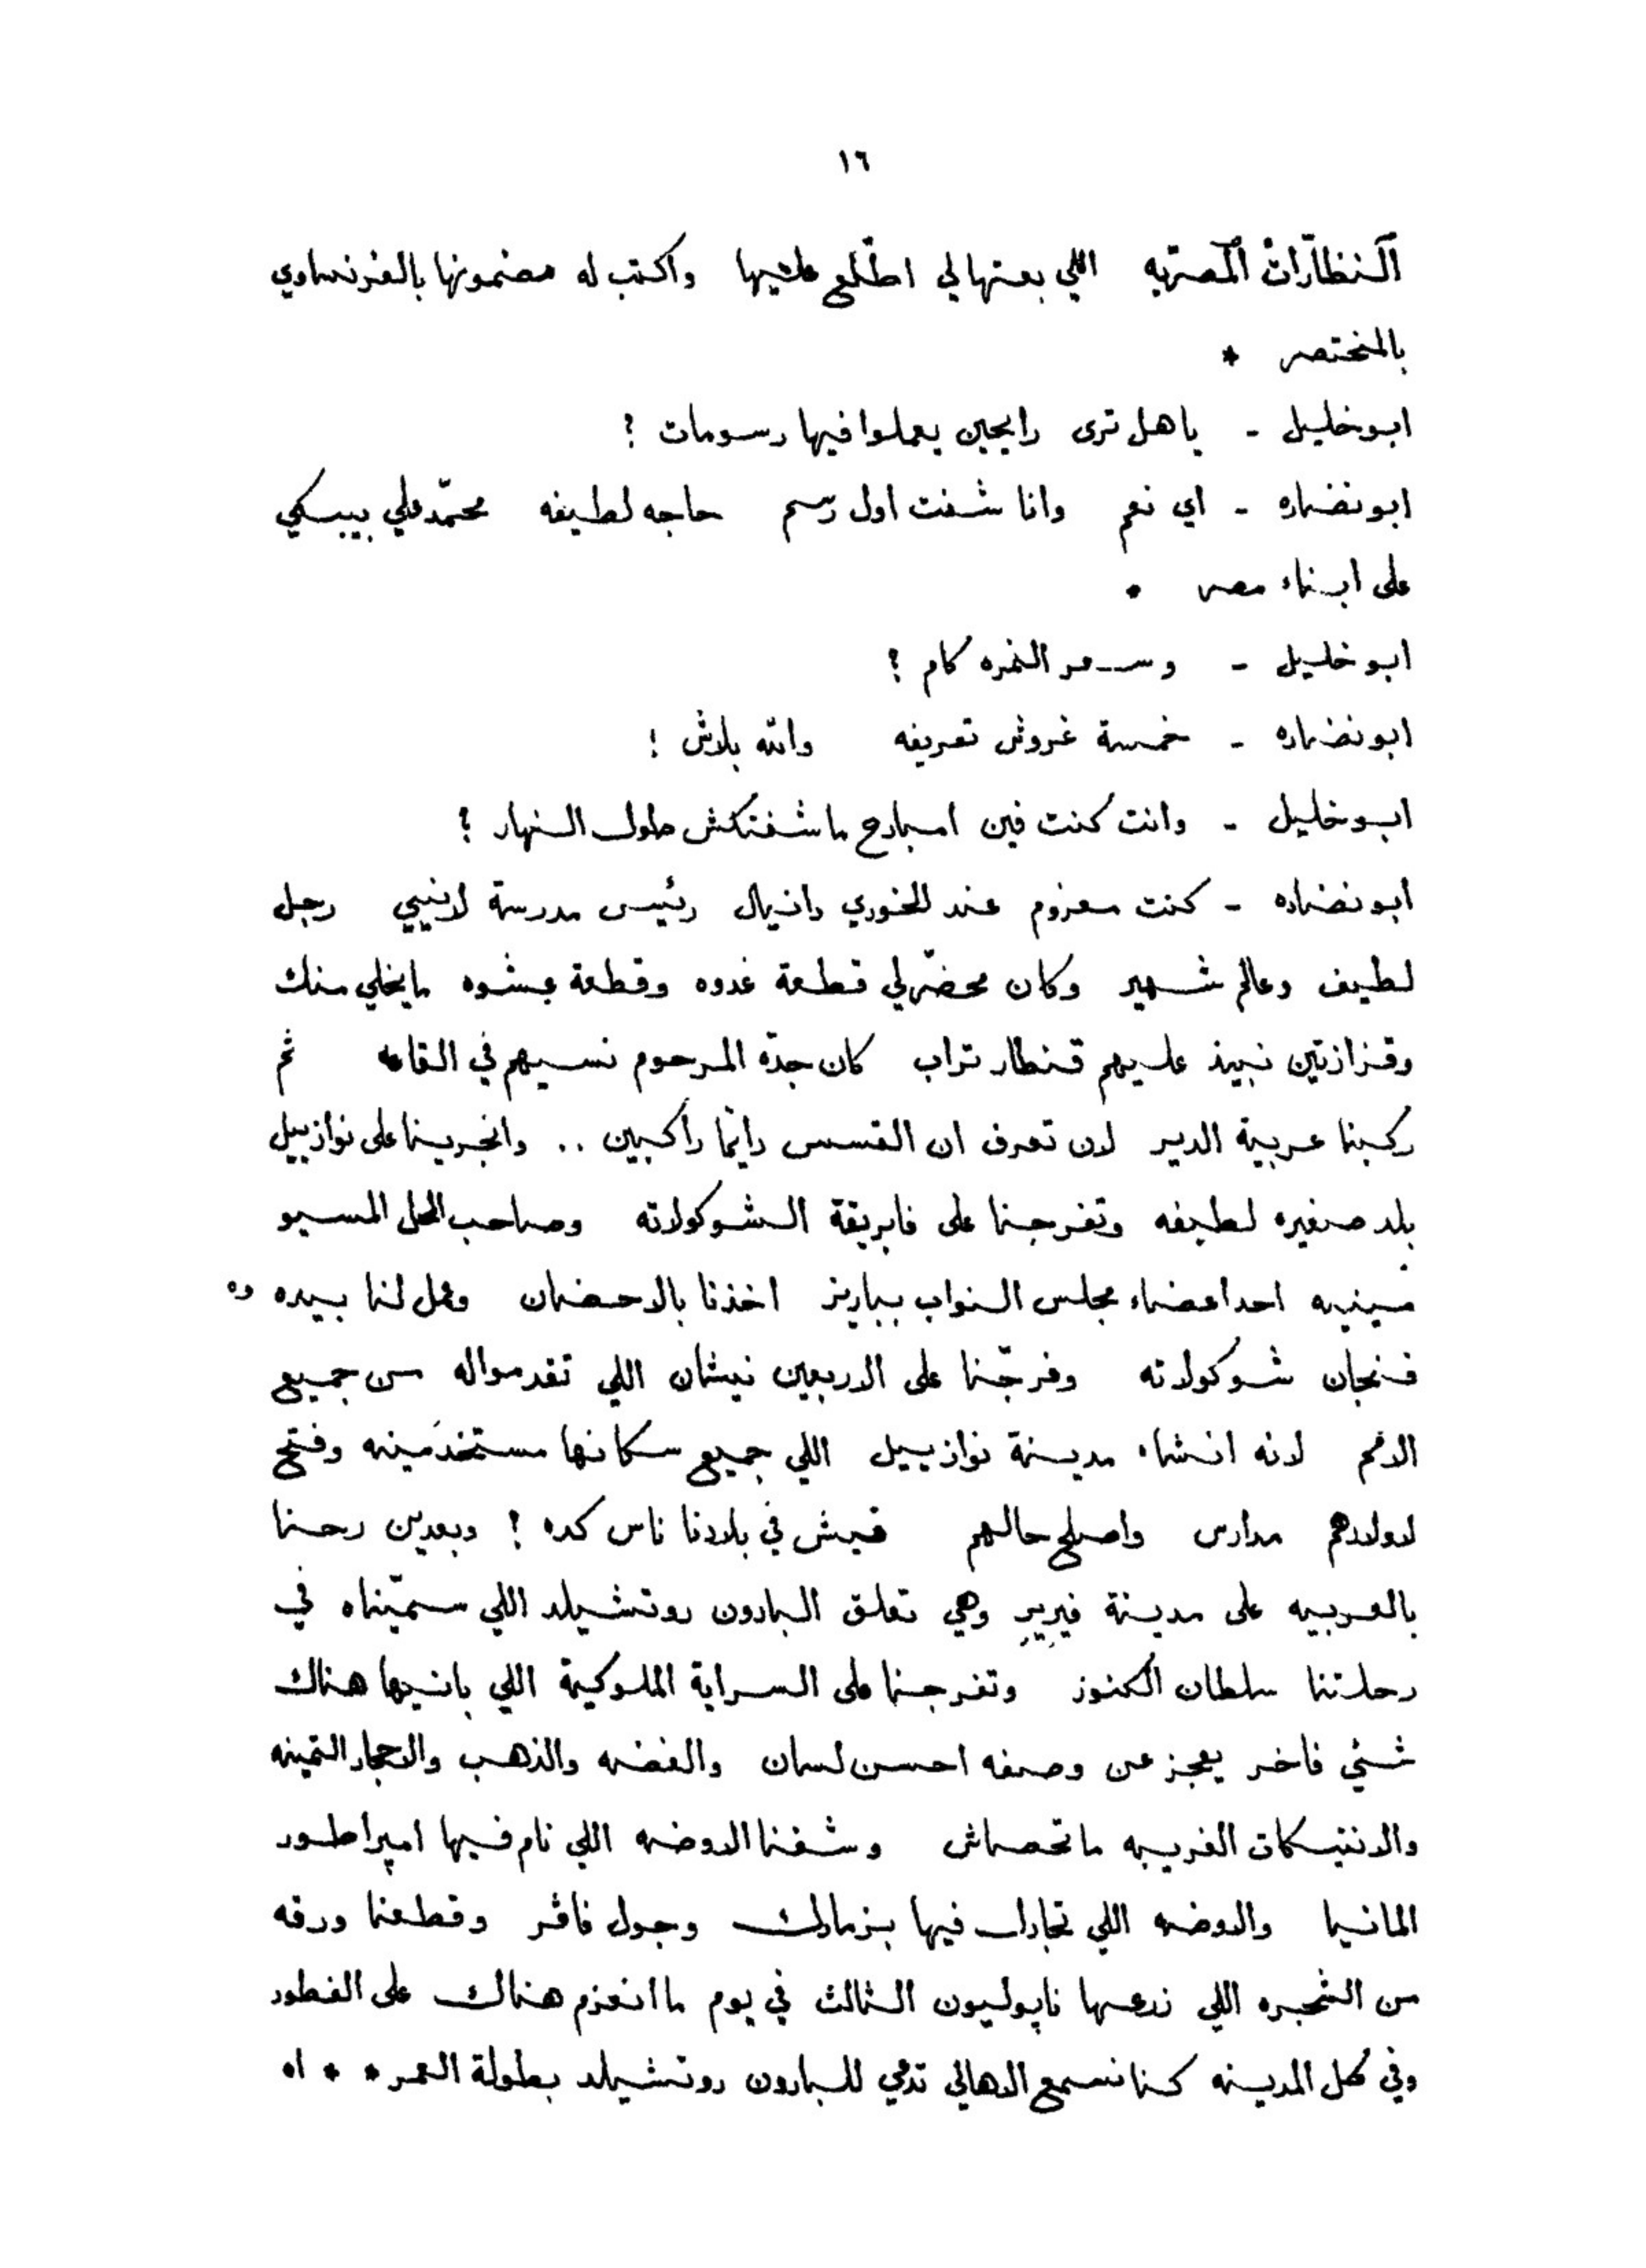 ١٦
النظّارات المصريّه اللي بعتها لي اطّلع عليها واكتب له مضمونها بالفرنساوي
بالمختصر *
ابو خليل - ياهل ترى رايحين يعملوا فيها رسومات ؟
ابو نضاره - اي نعم وانا شفت اول رسم حاجه لطيفه محمّد علي بيبكي
على ابناء مصر •
ابو خليل - وسعر النمره كام ؟
ابو نضاره - خمسة غروش تعريفه والله بلاش !
ابو خليل - وانت كنت فين امبارح ماشفتكش طول النهار ؟
ابو نضاره - كنت معزوم عند الخوري دانيال رئيس مدرسة لانيي رجل
لطيف وعالم شهير وكان محضّر لي قطعة غدوه وقطعة عشوه مايخلي منك
وقزازتين نبيذ عليهم قنطار تراب كان جدّه المرحوم نسيهم في القاعه ثم
ركبنا عربية الدير لان تعرف ان القسس دايمًا راكبين .. وانجرينا على نوازييل
بلد صغيره لطيفه وتفرجنا على فابريقة الشوكولاته وصاحب المحل المسيو
مينييه احد اعضاء مجلس النواب بباريز اخذنا بالاحضان وعمل لنا بيده ده
فنجان شوكولاته وفرجّنا على الاربعين نيشان اللي تقدموا له من جميع
الامم لانه انشاء مدينة نوازييل اللي جميع سكانها مستخدَمينه وفتح
لاولادهم مدارس واصلح حالهم فيش في بلادنا ناس كده ! وبعدين رحنا
بالعربيه على مدينة فيريير وهي تعلق البارون روتشيلد اللي سمّيناه في
رحلتنا سلطان الكنوز وتفرجنا على السراية الملوكية اللي بانيها هناك
شئي فاخر يعجز عن وصفه احسن لسان والفضه والذهب والاحجار الثمينه
والانتيكات الغريبه ماتحصاش وشفنا الاوضه اللي نام فيها امپراطور
المانيا والاوضه اللي تجادل فيها بزمارك وجول فاڤر وقطعنا ورقه
من الشجره اللي زرعها ناپوليون الثالث في يوم ما انعزم هناك على الفطور
وفي كل المدينه كنا نسمع الاهالي تدعي للبارون روتشيلد بطولة العمر * * اه